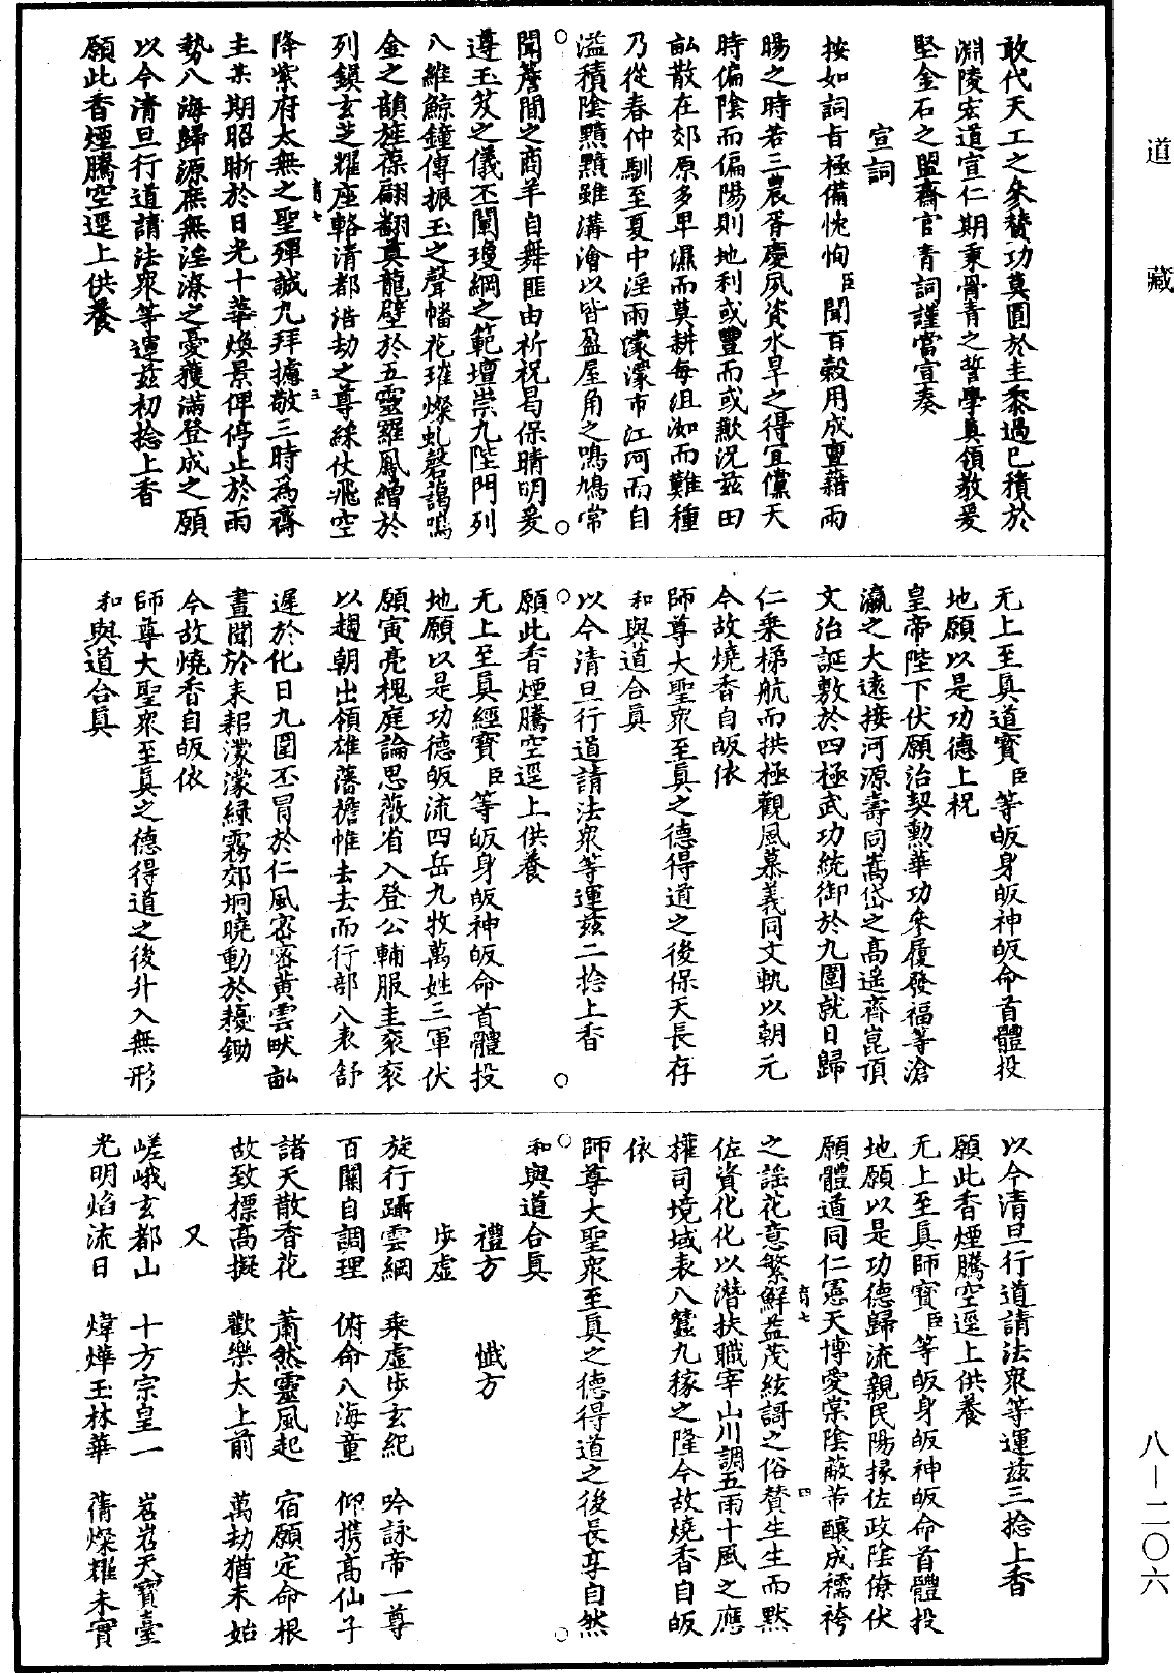 道藏
敢代天工之參賛功莫圓於圭黍過已積於
淵陵宏道宣仁期秉骨青之誓學真領教爰
堅金石之盟齋官青詞謹當宣奏
宣詞
按如詞旨極備悃恂臣聞百穀用成亶藉雨
暘之時若三農胥慶夙資水旱之得宜儻天
時偏陰而偏陽則地利或豐而或歉況兹田
畝散在郊原多早濕而莫耕每沮洳而難種
乃從春仲馴至夏中淫雨濛濛市江河而自
溢積陰黯黯雖溝澮以皆盈屋角之鳴鳩常
聞簷間之商羊自舞匪由祈祝曷保晴明爰
遵玉笈之儀丕闡瓊綱之範壇崇九陛門列
八維鯨鐘傳振玉之聲幡花璀燦虬磬謁鳴
金之韻旌葆翩翻奠龍璧於五靈羅鳳繒於
列鎮玄芝耀座輅清都浩劫之尊綵仗飛空
育七
三
降紫府太無之聖殫誠九拜攄敬三時為齋
主某期昭晰於日光十華煥景俾停止於雨
勢八海歸源庶無淫潦之憂獲滿登成之願
以今清旦行道請法衆等運兹初捻上香
願此香煙騰空逕上供養
无上至真道寳臣等皈身皈神皈命首體投
地願以是功德上祝
皇帝陛下伏願治契勳華功參履發福等滄
瀛之大遠接河源壽同嵩岱之高遙齊崑頂
文治誕敷於四極武功統御於九圍就日歸
仁乗梯航而拱極觀風慕義同文軌以朝元
今故燒香自皈依
師尊大聖衆至真之德得道之後保天長存
和與道合真
以今清旦行道請法衆等運兹二捻上香
願此香煙騰空逕上供養
无上至真經寳臣等皈身皈神皈命首體投
地願以是功德皈流四岳九牧萬姓三軍伏
願寅亮槐庭論思薇省入登公輔服圭衮衮
以趨朝出領雄藩襜帷去去而行部八表舒
遲於化日九圍丕冐於仁風密密黄雲畎畝
晝聞於耒耜濛濛緑霧郊坰曉動於耰鋤
今故燒香自皈依
師尊大聖衆至真之德得道之後升入無形
和與道合真
以今清旦行道請法衆等運兹三捻上香
願此香煙騰空逕上供養
无上至真師寳臣等皈身皈神皈命首體投
地願以是功德歸流親民陽掾佐政陰僚伏
願體道同仁憲天博愛棠陰蔽芾釀成襦袴
育七
四
之謡花意繁鮮益茂絃謌之俗賛生生而黙
佐資化化以潜扶職宰山川調五雨十風之應
權司境域表八蠶九稼之隆今故燒香自皈
依
師尊大聖衆至真之德得道之後長享自然
和與道合真
禮方 懺方
步虚
旋行躡雲綱 乗虚步玄紀 吟詠帝一尊
百關自調理 俯命八海童 仰携高仙子
諸天散香花 蕭然靈風起 宿願定命根
故致標高擬 歡樂太上前 萬劫猶未始
又
嵯峨玄都山 十方宗皇一 岧岧天寳臺
光明焰流日 煒燁玉林華 蒨燦耀朱實
八—二〇六